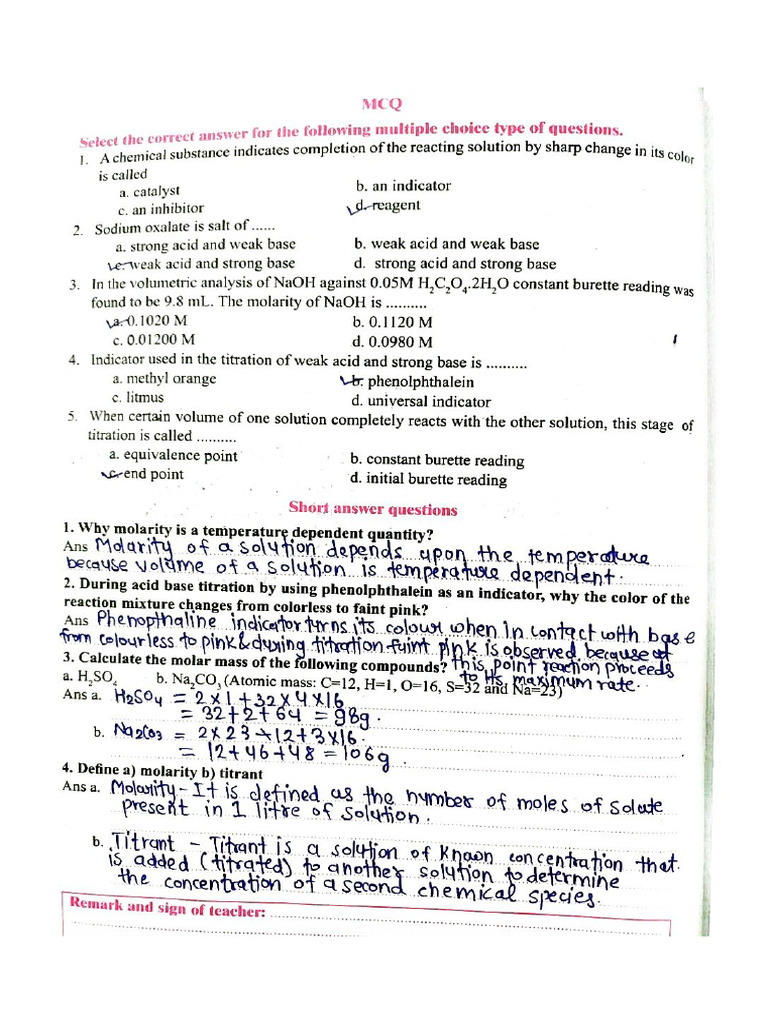 MCQ
Select the correct answer for the following multiple choice type of questions.
1. A chemical substance indicates completion of the reacting solution by sharp change in its color
is called
a. catalyst b. an indicator
c. an inhibitor d. reagent
2. Sodium oxalate is salt of ......
a. strong acid and weak base b. weak acid and weak base
c. weak acid and strong base d. strong acid and strong base
3. In the volumetric analysis of NaOH against 0.05M H₂C₂O₄.2H₂O constant burette reading was
found to be 9.8 mL. The molarity of NaOH is ..........
a. 0.1020 M b. 0.1120 M
c. 0.01200 M d. 0.0980 M
4. Indicator used in the titration of weak acid and strong base is ..........
a. methyl orange b. phenolphthalein
c. litmus d. universal indicator
5. When certain volume of one solution completely reacts with the other solution, this stage of
titration is called ..........
a. equivalence point b. constant burette reading
c. end point d. initial burette reading
Short answer questions
1. Why molarity is a temperature dependent quantity?
Ans Molarity of a solution depends upon the temperature
because volume of a solution is temperature dependent.
2. During acid base titration by using phenolphthalein as an indicator, why the color of the
reaction mixture changes from colorless to faint pink?
Ans Phenopthaline indicator turns its colour when in contact with base
from colourless to pink & during titration faint pink is observed because at
3. Calculate the molar mass of the following compounds? this point reaction proceeds
a. H₂SO₄ b. Na₂CO₃ (Atomic mass: C=12, H=1, O=16, S=32 and Na=23) to its maximum rate.
Ans a. H₂SO₄ = 2×1+32×4×16
= 32+2+64 = 98g.
b. Na₂CO₃ = 2×23+12+3×16.
= 12+46+48 = 106g
4. Define a) molarity b) titrant
Ans a. Molarity - It is defined as the number of moles of solute
present in 1 litre of solution.
b. Titrant - Titrant is a solution of known concentration that
is added (titrated) to another solution to determine
the concentration of a second chemical species.
Remark and sign of teacher: